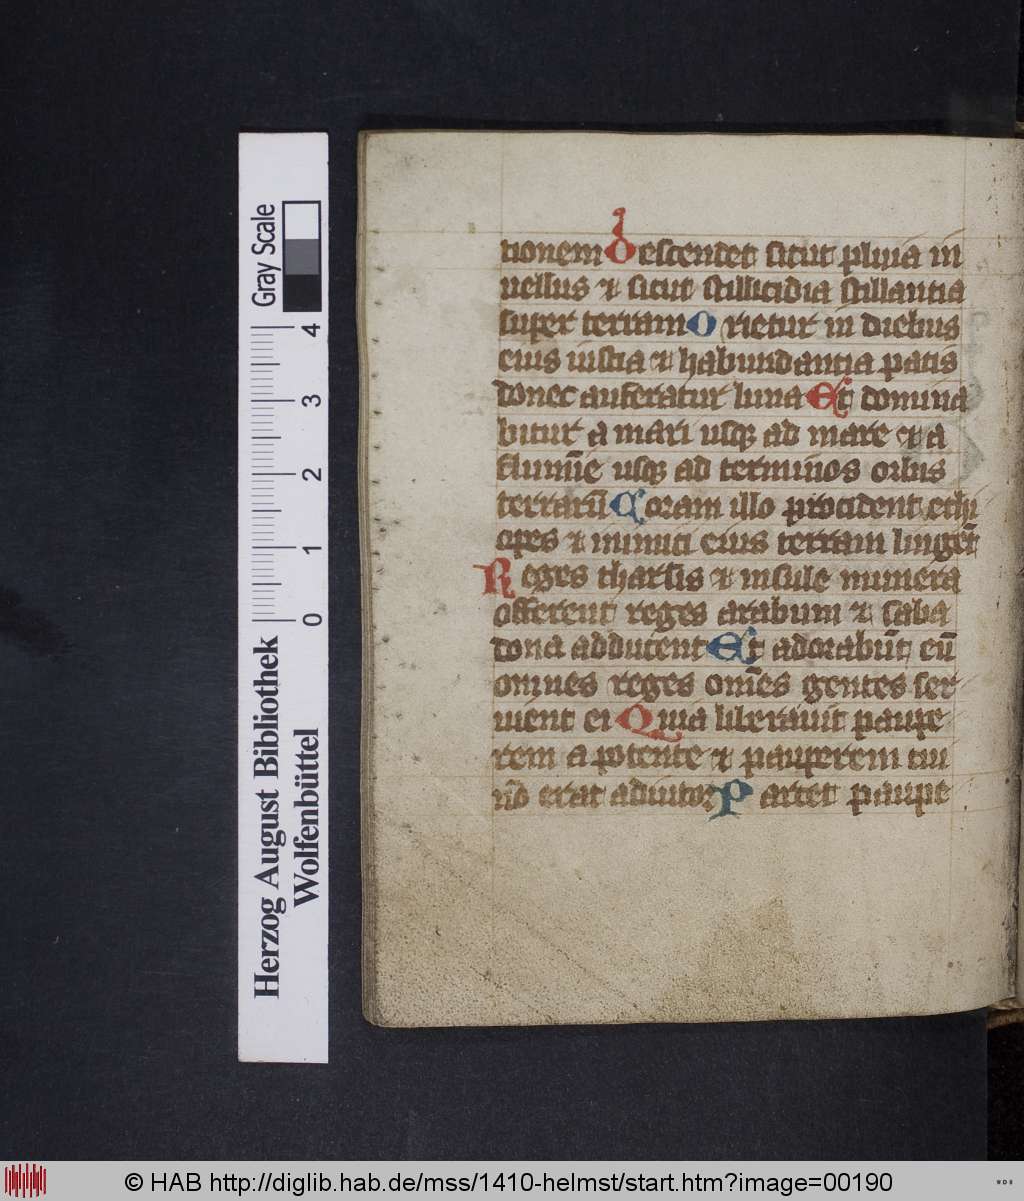 tionem Descendet sicut pluuia in
uellus et sicut stillicidia stillantia
super terram Orietur in diebus
eius iustia et habundantia pacis
donec auferatur luna Et domina
bitur a mari usq̢ ad mare et a
flumīe usq̢ ad terminos orbis
terrarū Coram illo procident ethi
opes et inimici eius terram lingēt
Reges tharsis et insule munera
offerent reges arabum et saba
dona adducent Et adorabūt eū
omnes reges om̄es gentes ser
uient ei Quia liberauit paupe
rem a potente et pauperem cui
nō erat adiutor Parcet paupe
Gray Scale
4
3
2
1
0
Herzog August Bibliothek
Wolfenbüttel
© HAB http://diglib.hab.de/mss/1410-helmst/start.htm?image=00190